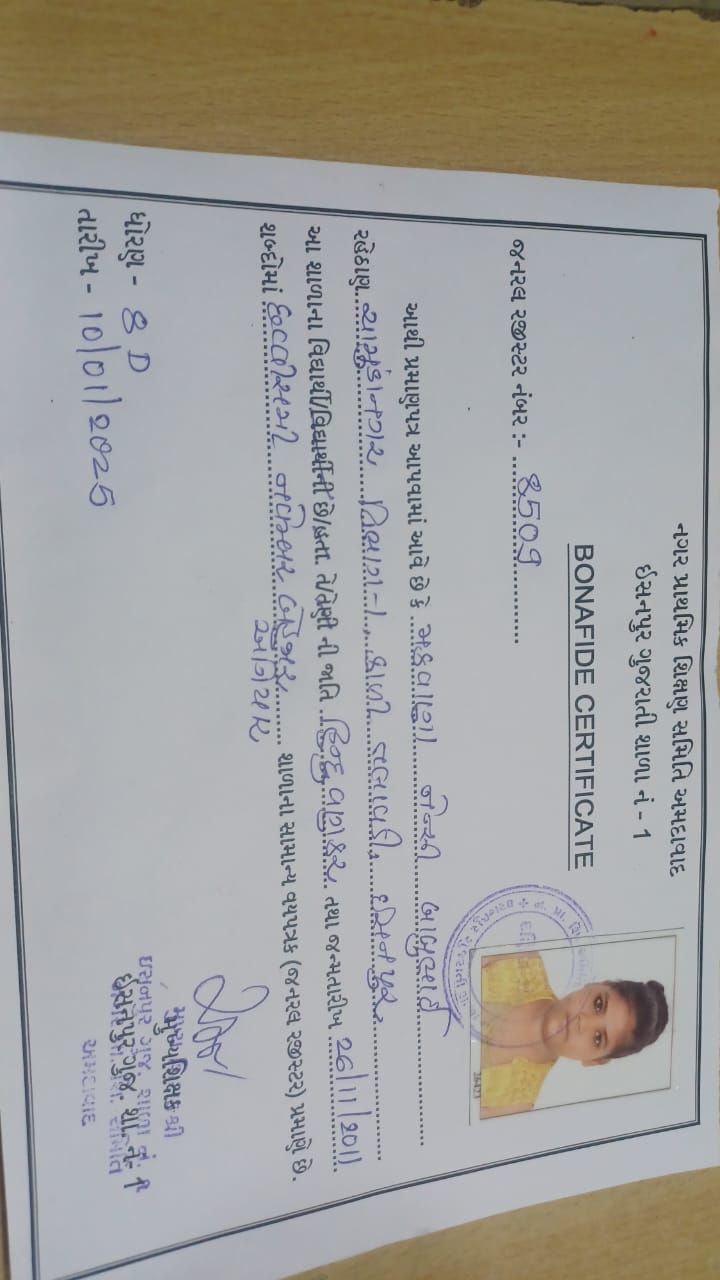 નગર પ્રાથમિક શિક્ષણ સમિતિ અમદાવાદ
ઈસનપુર ગુજરાતી શાળા નં - 1
BONAFIDE CERTIFICATE
જનરલ રજીસ્ટર નંબર :- ૪૬૦૧
આથી પ્રમાણપત્ર આપવામાં આવે છે કે મકવાણા જેન્સી બાબુભાઈ
રહેઠાણ ચામુંડાનગર વિભાગ-૧, ઇસનપુર
આ શાળાના વિદ્યાર્થી/વિદ્યાર્થીની છે/હતા. તે/તેણી ની જાતિ હિન્દુ વણકર તથા જન્મતારીખ 26/11/2011
શબ્દોમાં છવ્વીસમી નવેમ્બર બે હજાર અગિયાર શાળાના સામાન્ય વયપત્રક (જનરલ રજીસ્ટર) પ્રમાણે છે.
ધોરણ - 8 D
તારીખ - 10/01/2025
મુખ્યશિક્ષકશ્રી
ઇસનપુર ગુજ. શાળા નં. ૧
અમદાવાદ
26423